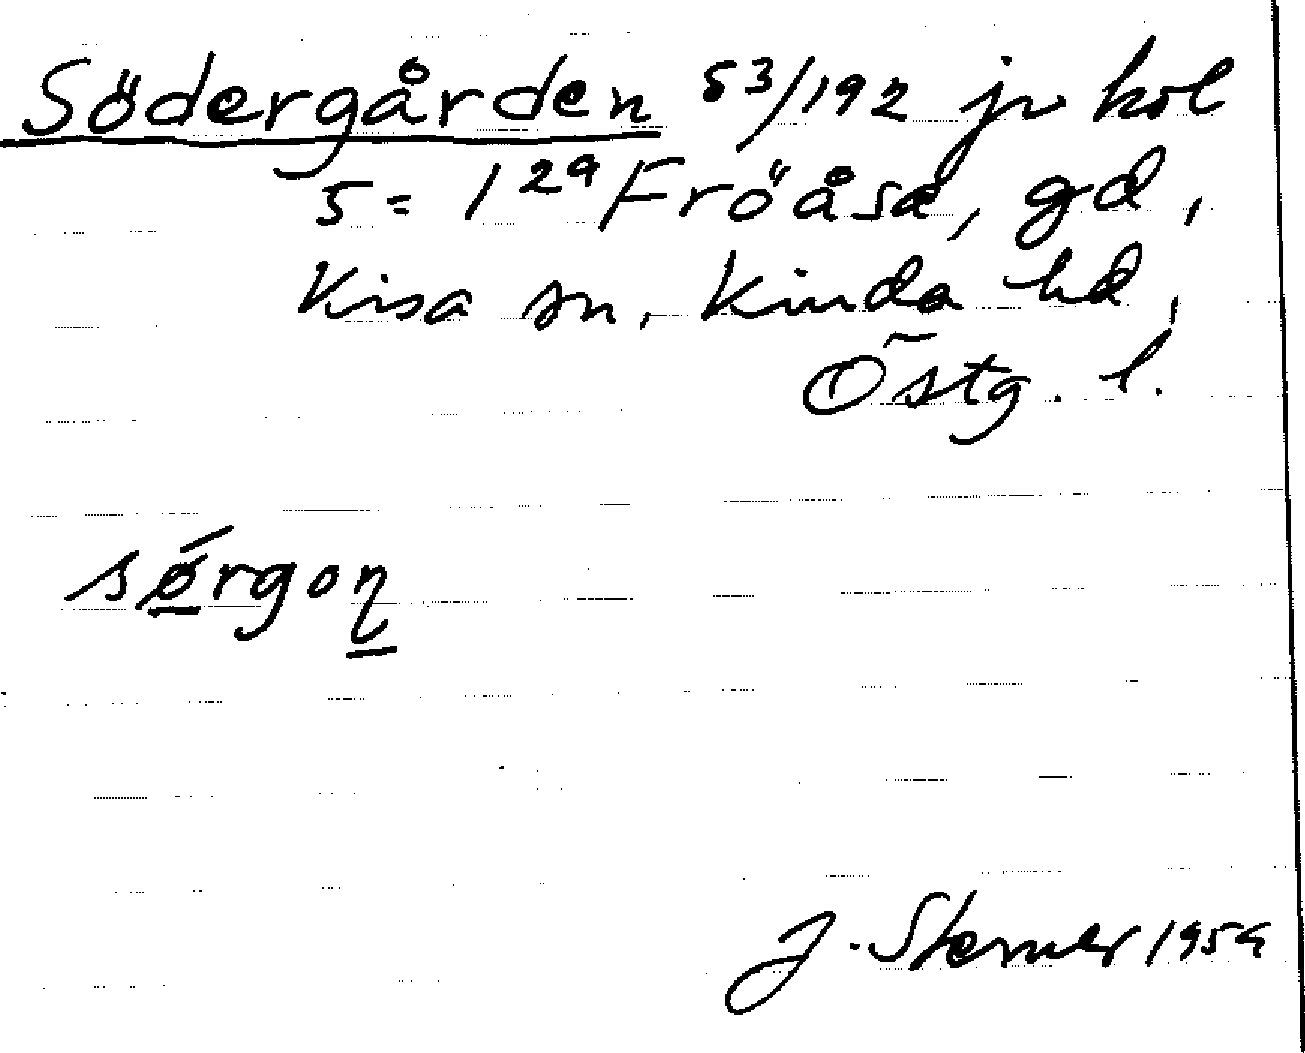 Södergården 53/192 jr kol
5 = 1²⁹ Fröåsa, gd,
Kisa sn, Kinda hd,
Östg. l.
sǿ̱rgoṉ
J. Sterner 1954